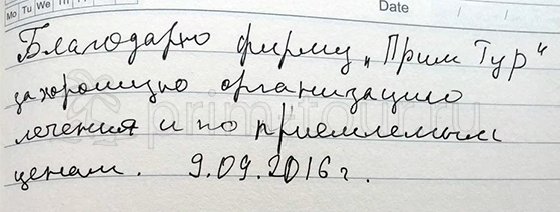 Mo Tu We Th Fr
Date / /
Благодарю фирму „Прим Тур“
за хорошую организацию
лечения и по приемлемым
ценам. 9.09.2016 г.
prim-tour.ru